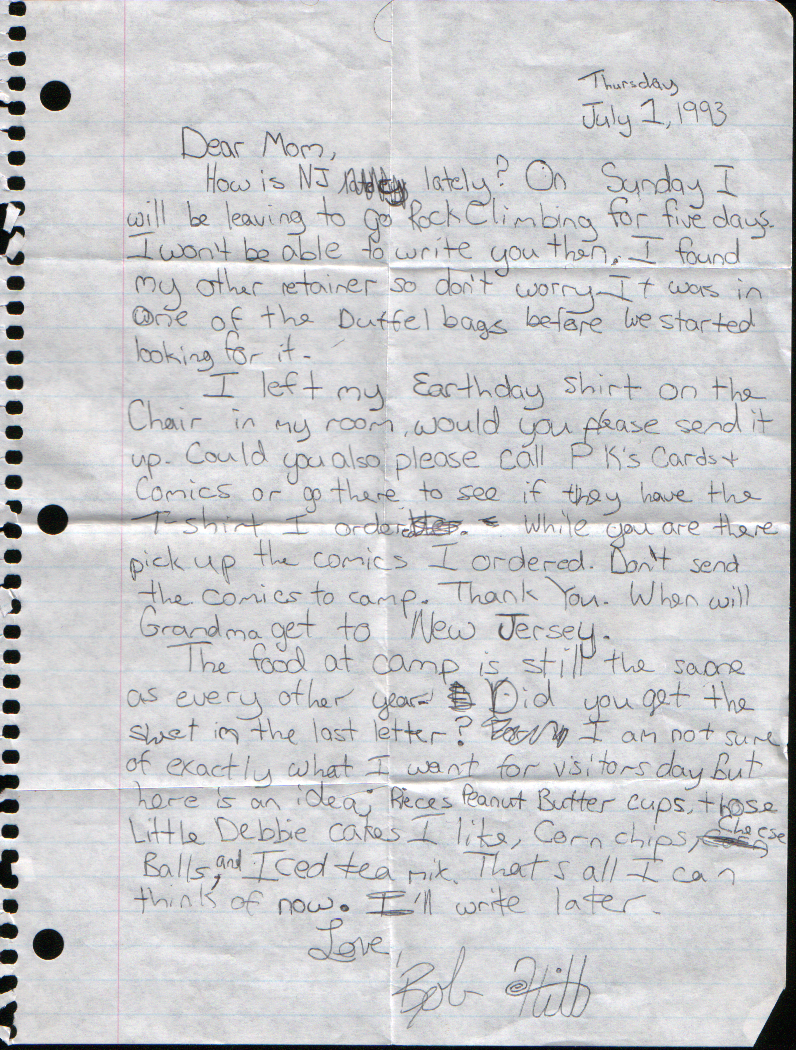 Thursday
July 1, 1993
Dear Mom,
How is NJ lately? On Sunday I
will be leaving to go Rock Climbing for five days.
I won't be able to write you then. I found
my other retainer so don't worry. It was in
One of the Duffel bags before we started
looking for it.
I left my Earthday shirt on the
Chair in my room, would you please send it
up. Could you also please call P K's Cards +
Comics or go there to see if they have the
T-shirt I order. While you are there
pick up the comics I ordered. Don't send
the comics to camp. Thank You. When will
Grandma get to New Jersey.
The food at camp is still the same
as every other year. Did you get the
sheet in the last letter? I am not sure
of exactly what I want for visitors day But
here is an idea; Rieces Peanut Butter cups, those
Little Debbie cakes I like, Corn chips, Cheese
Balls, and Iced tea mix. That's all I can
think of now. I'll write later.
Love,
Bob